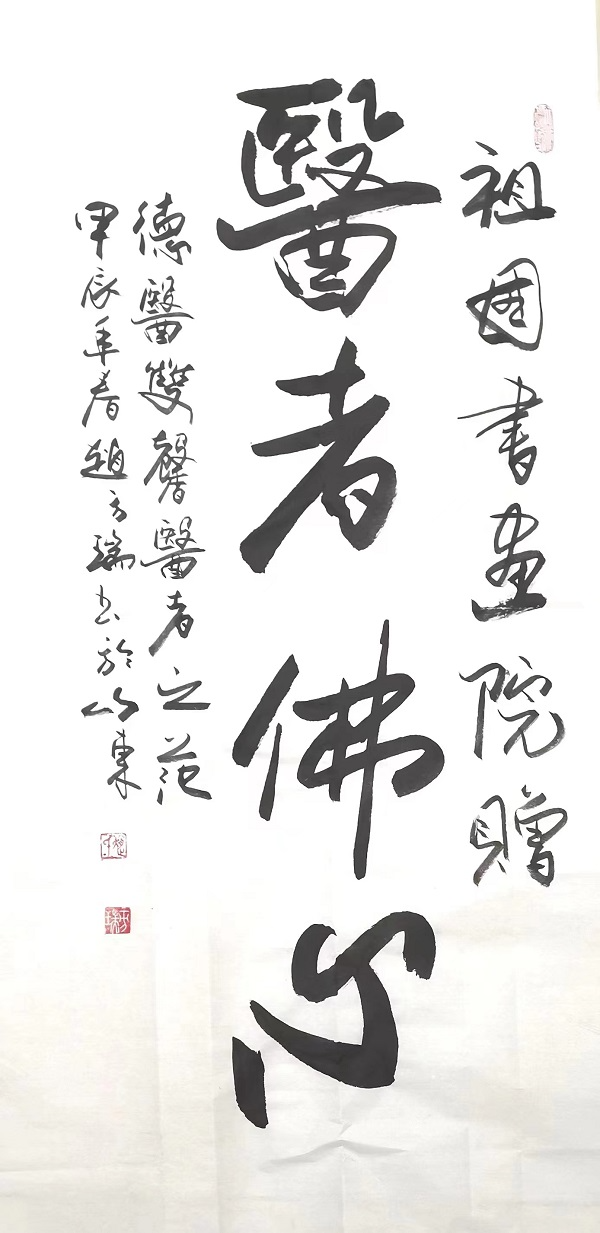 祖國書畫院贈
醫者佛心
德醫雙馨醫者之范
甲辰年春趙方瑞书於山東